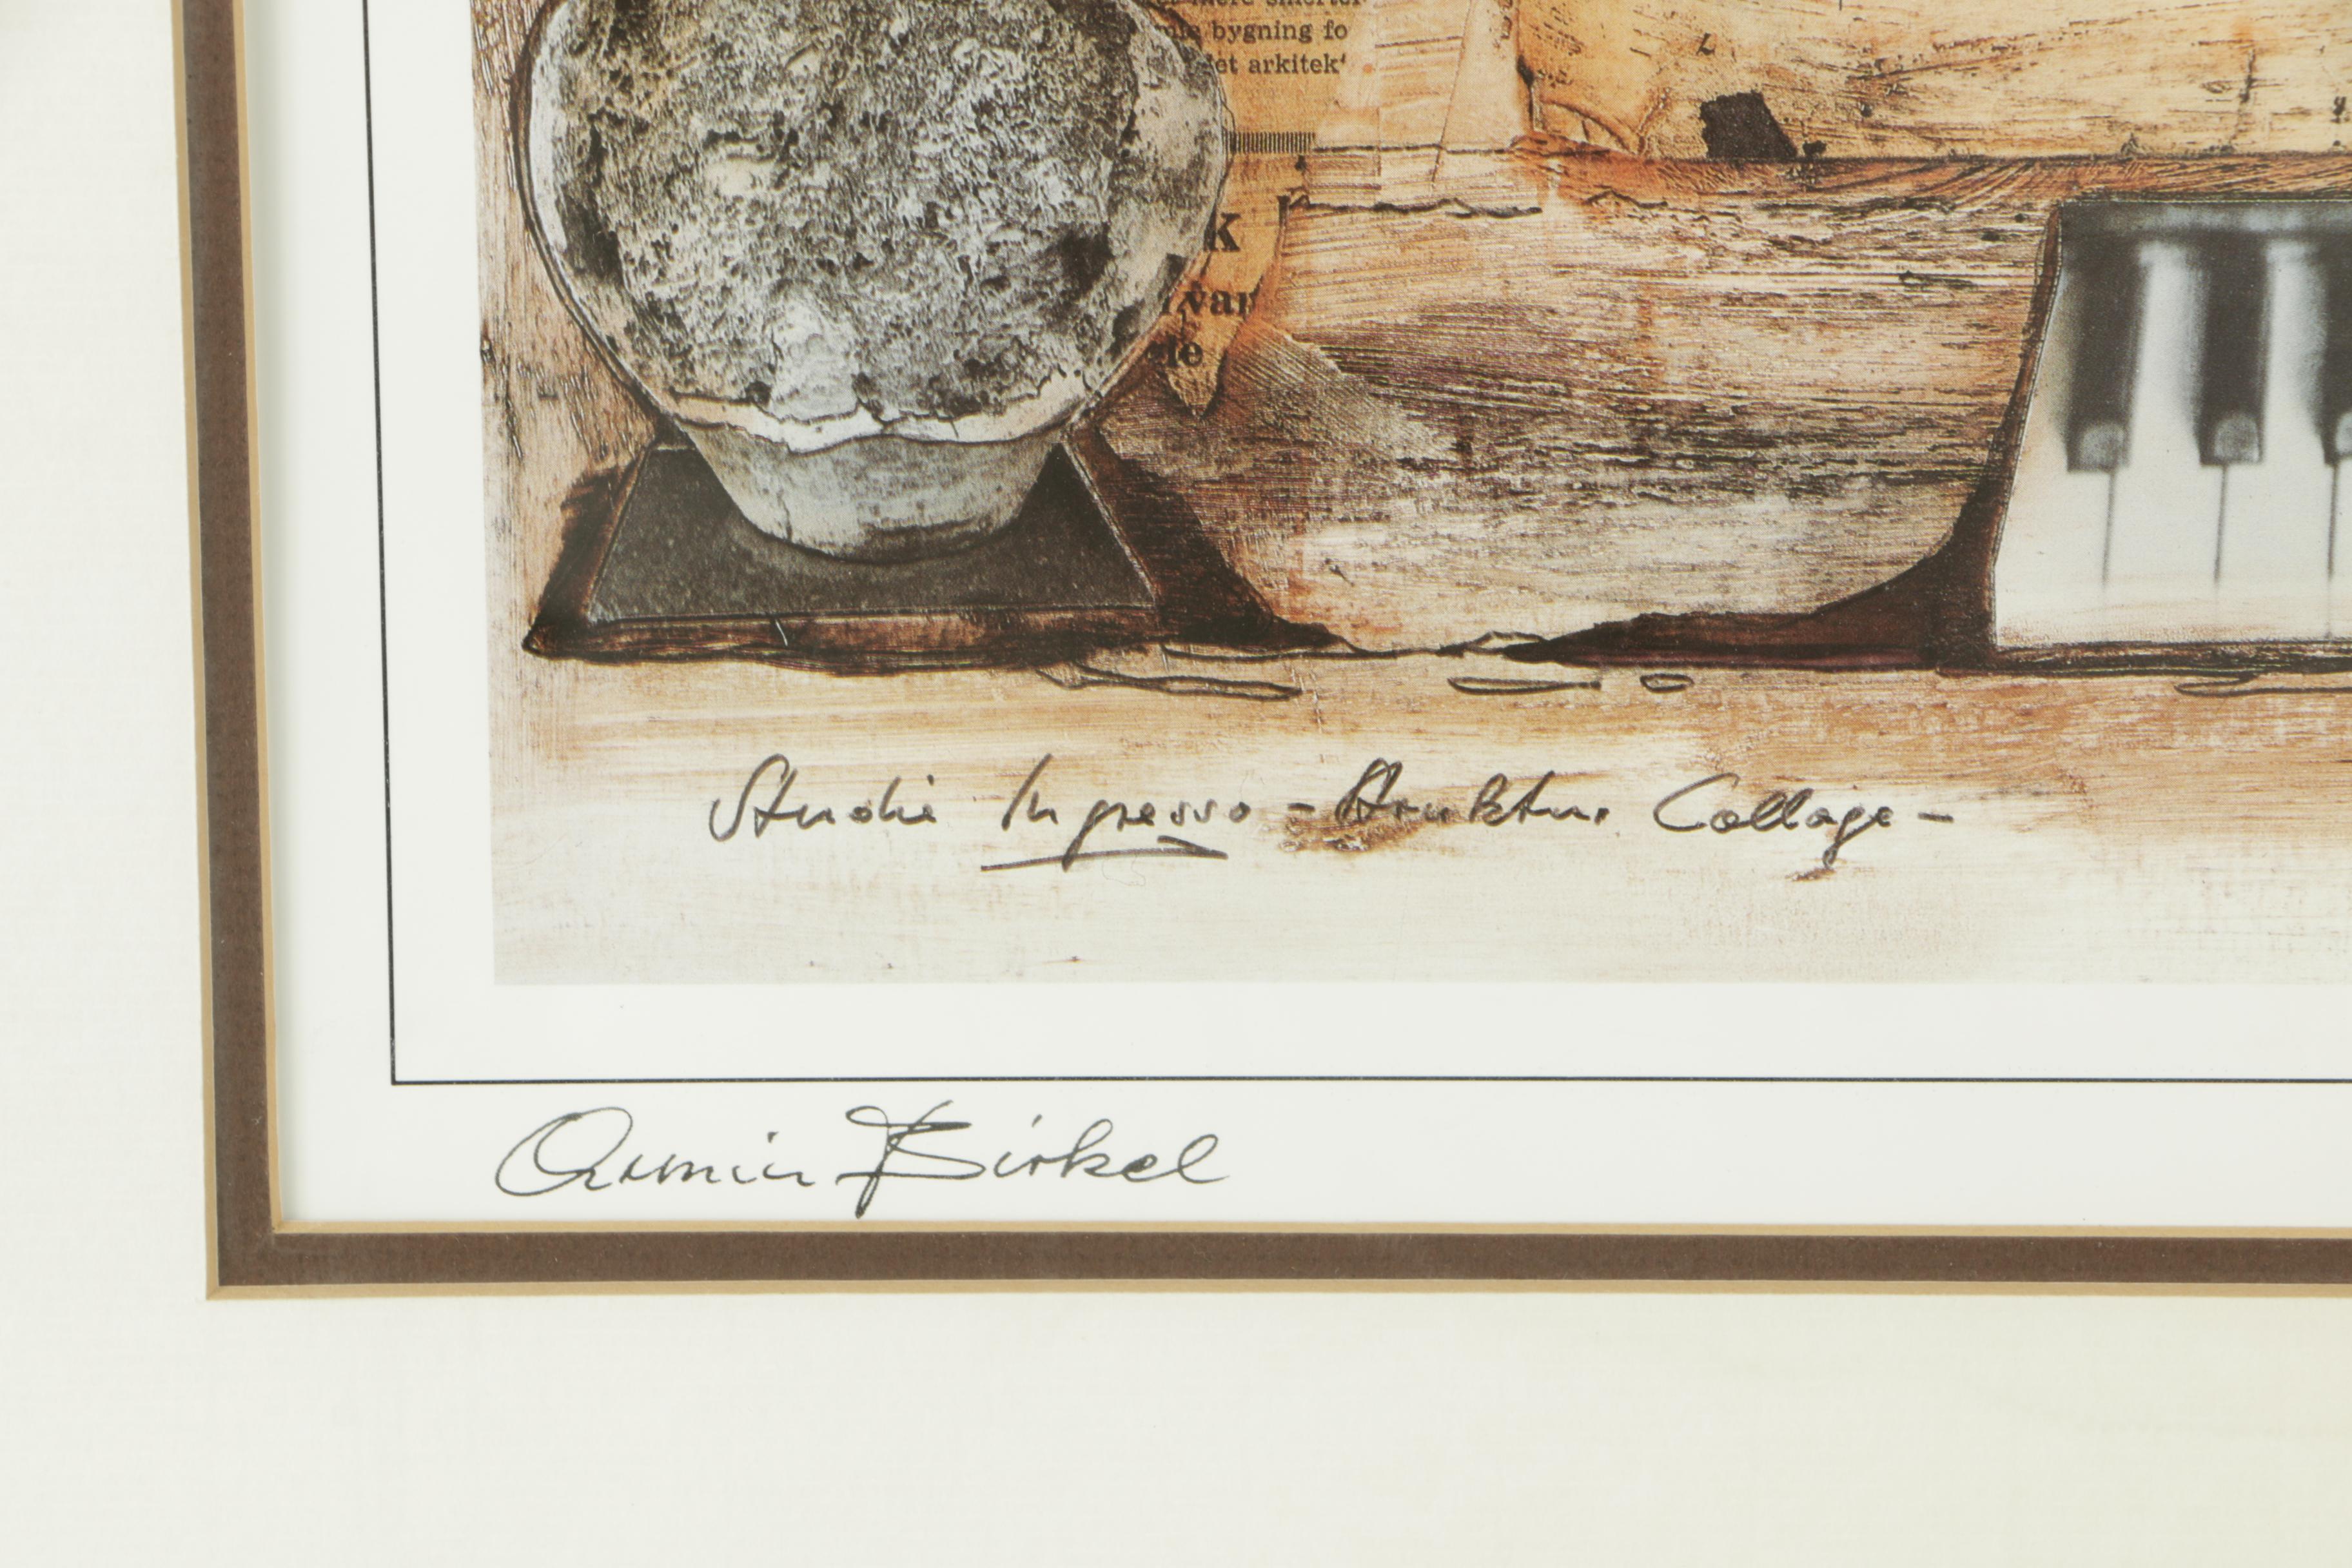 bygning fo
et arkitek'
k
var
de
Studie Ingresso - Struktur Collage -
Armin Birkel